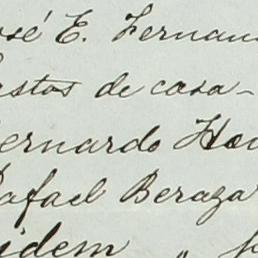 osé E. Fernan
astos de casa-
ernardo Hou
Rafael Beraza
idem "